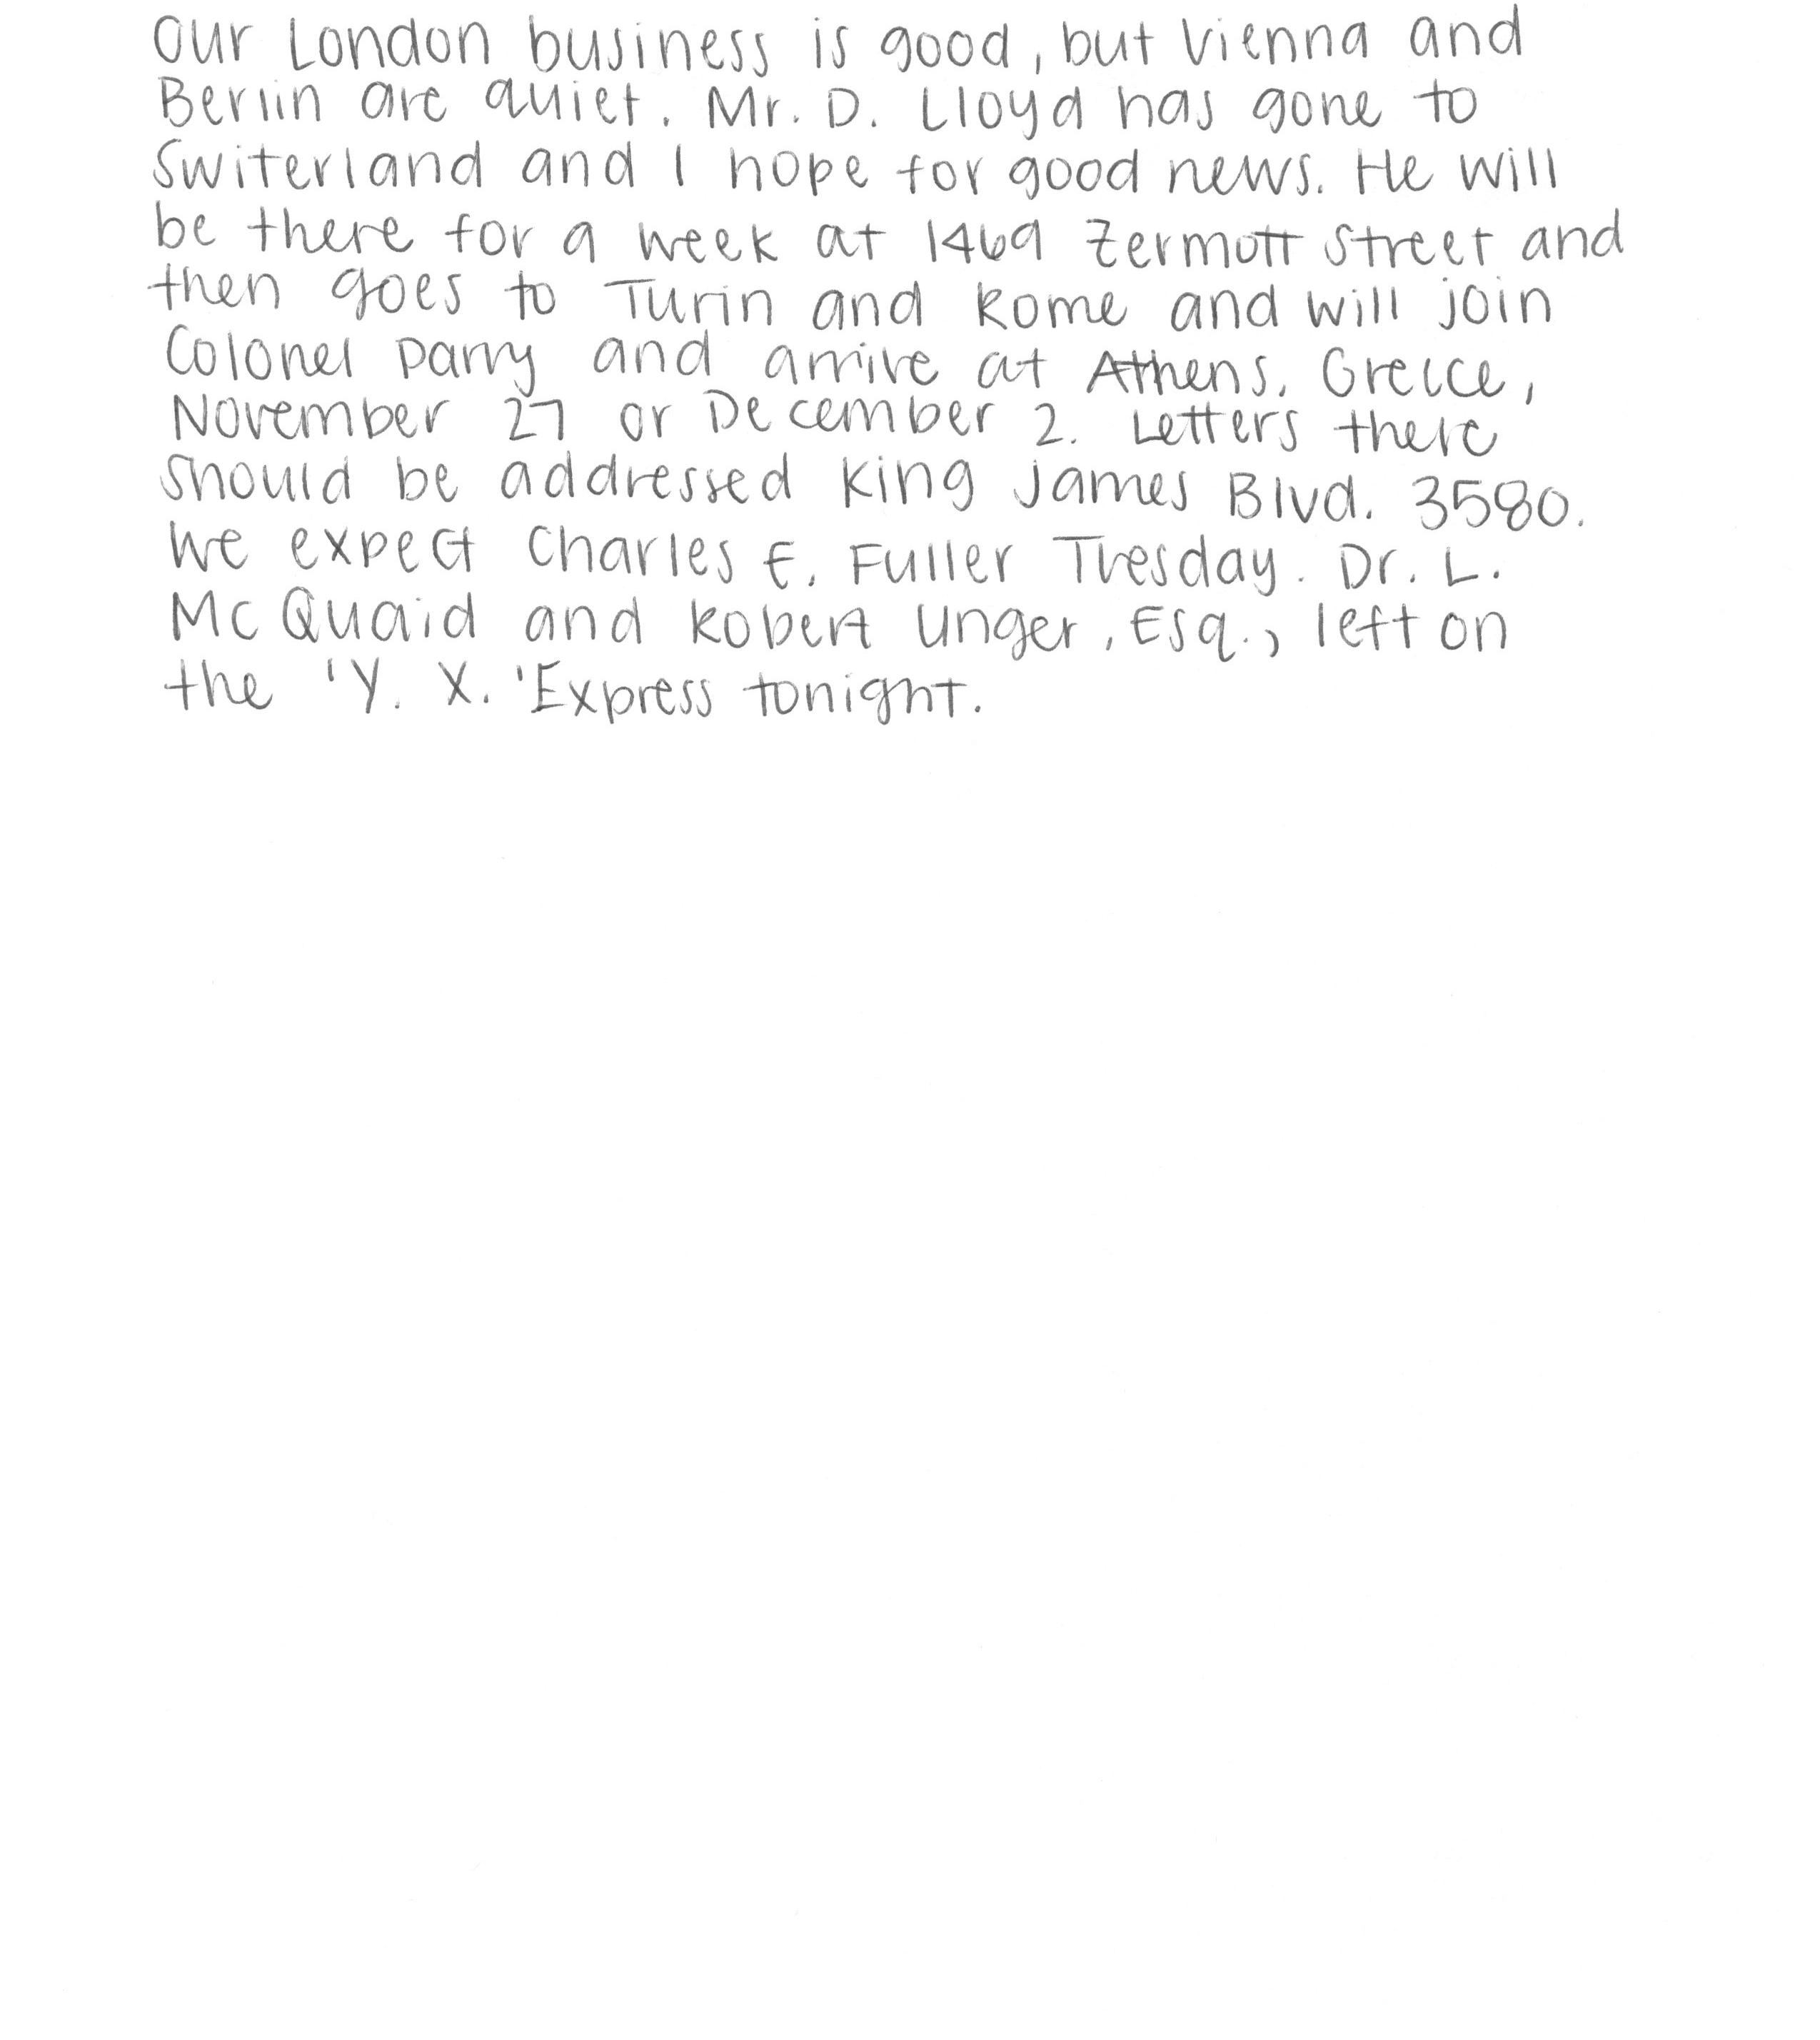 Our London business is good, but Vienna and
Berlin are quiet. Mr. D. Lloyd has gone to
Switerland and I hope for good news. He will
be there for a week at 1469 Zermott Street and
then goes to Turin and Rome and will join
Colonel Parry and arrive at Athens, Greece,
November 27 or December 2. Letters there
should be addressed King James Blvd. 3580.
We expect Charles E. Fuller Tuesday. Dr. L.
McQuaid and Robert Unger, Esq., left on
the 'Y. X. 'Express tonight.